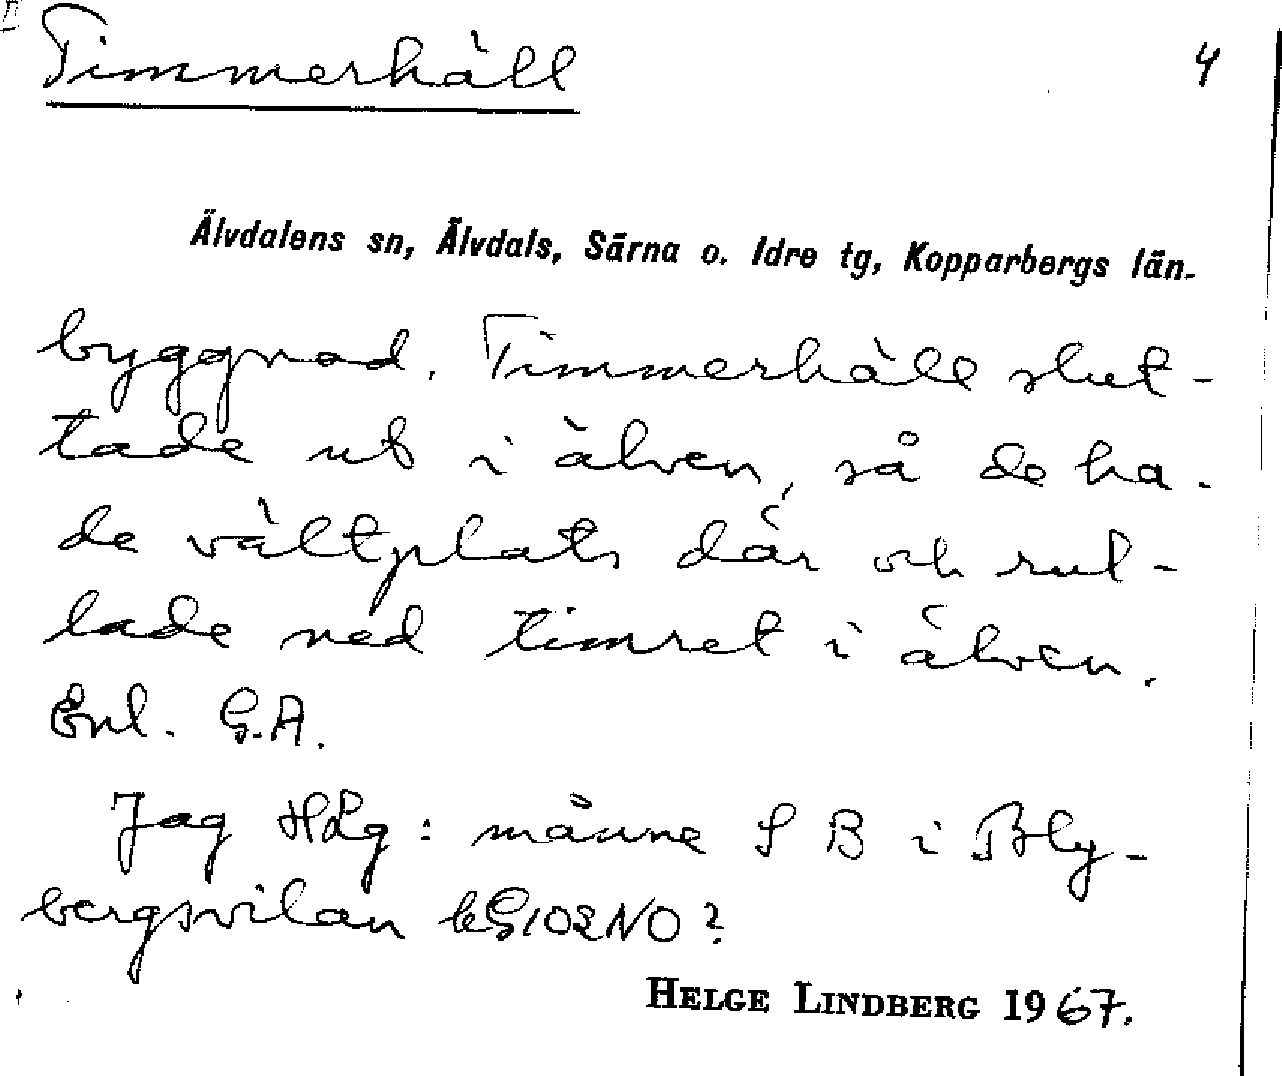 Timmerhäll 4
Älvdalens sn, Älvdals, Särna o. Idre tg, Kopparbergs län.
byggnad. Timmerhäll slut-
tade ut i älven, så de ha-
de vältplats där och rul-
lade ned timret i älven.
Enl. G.A.
Jag HLg: månne S B i Bly-
bergsvilan
HELGE LINDBERG 1967.